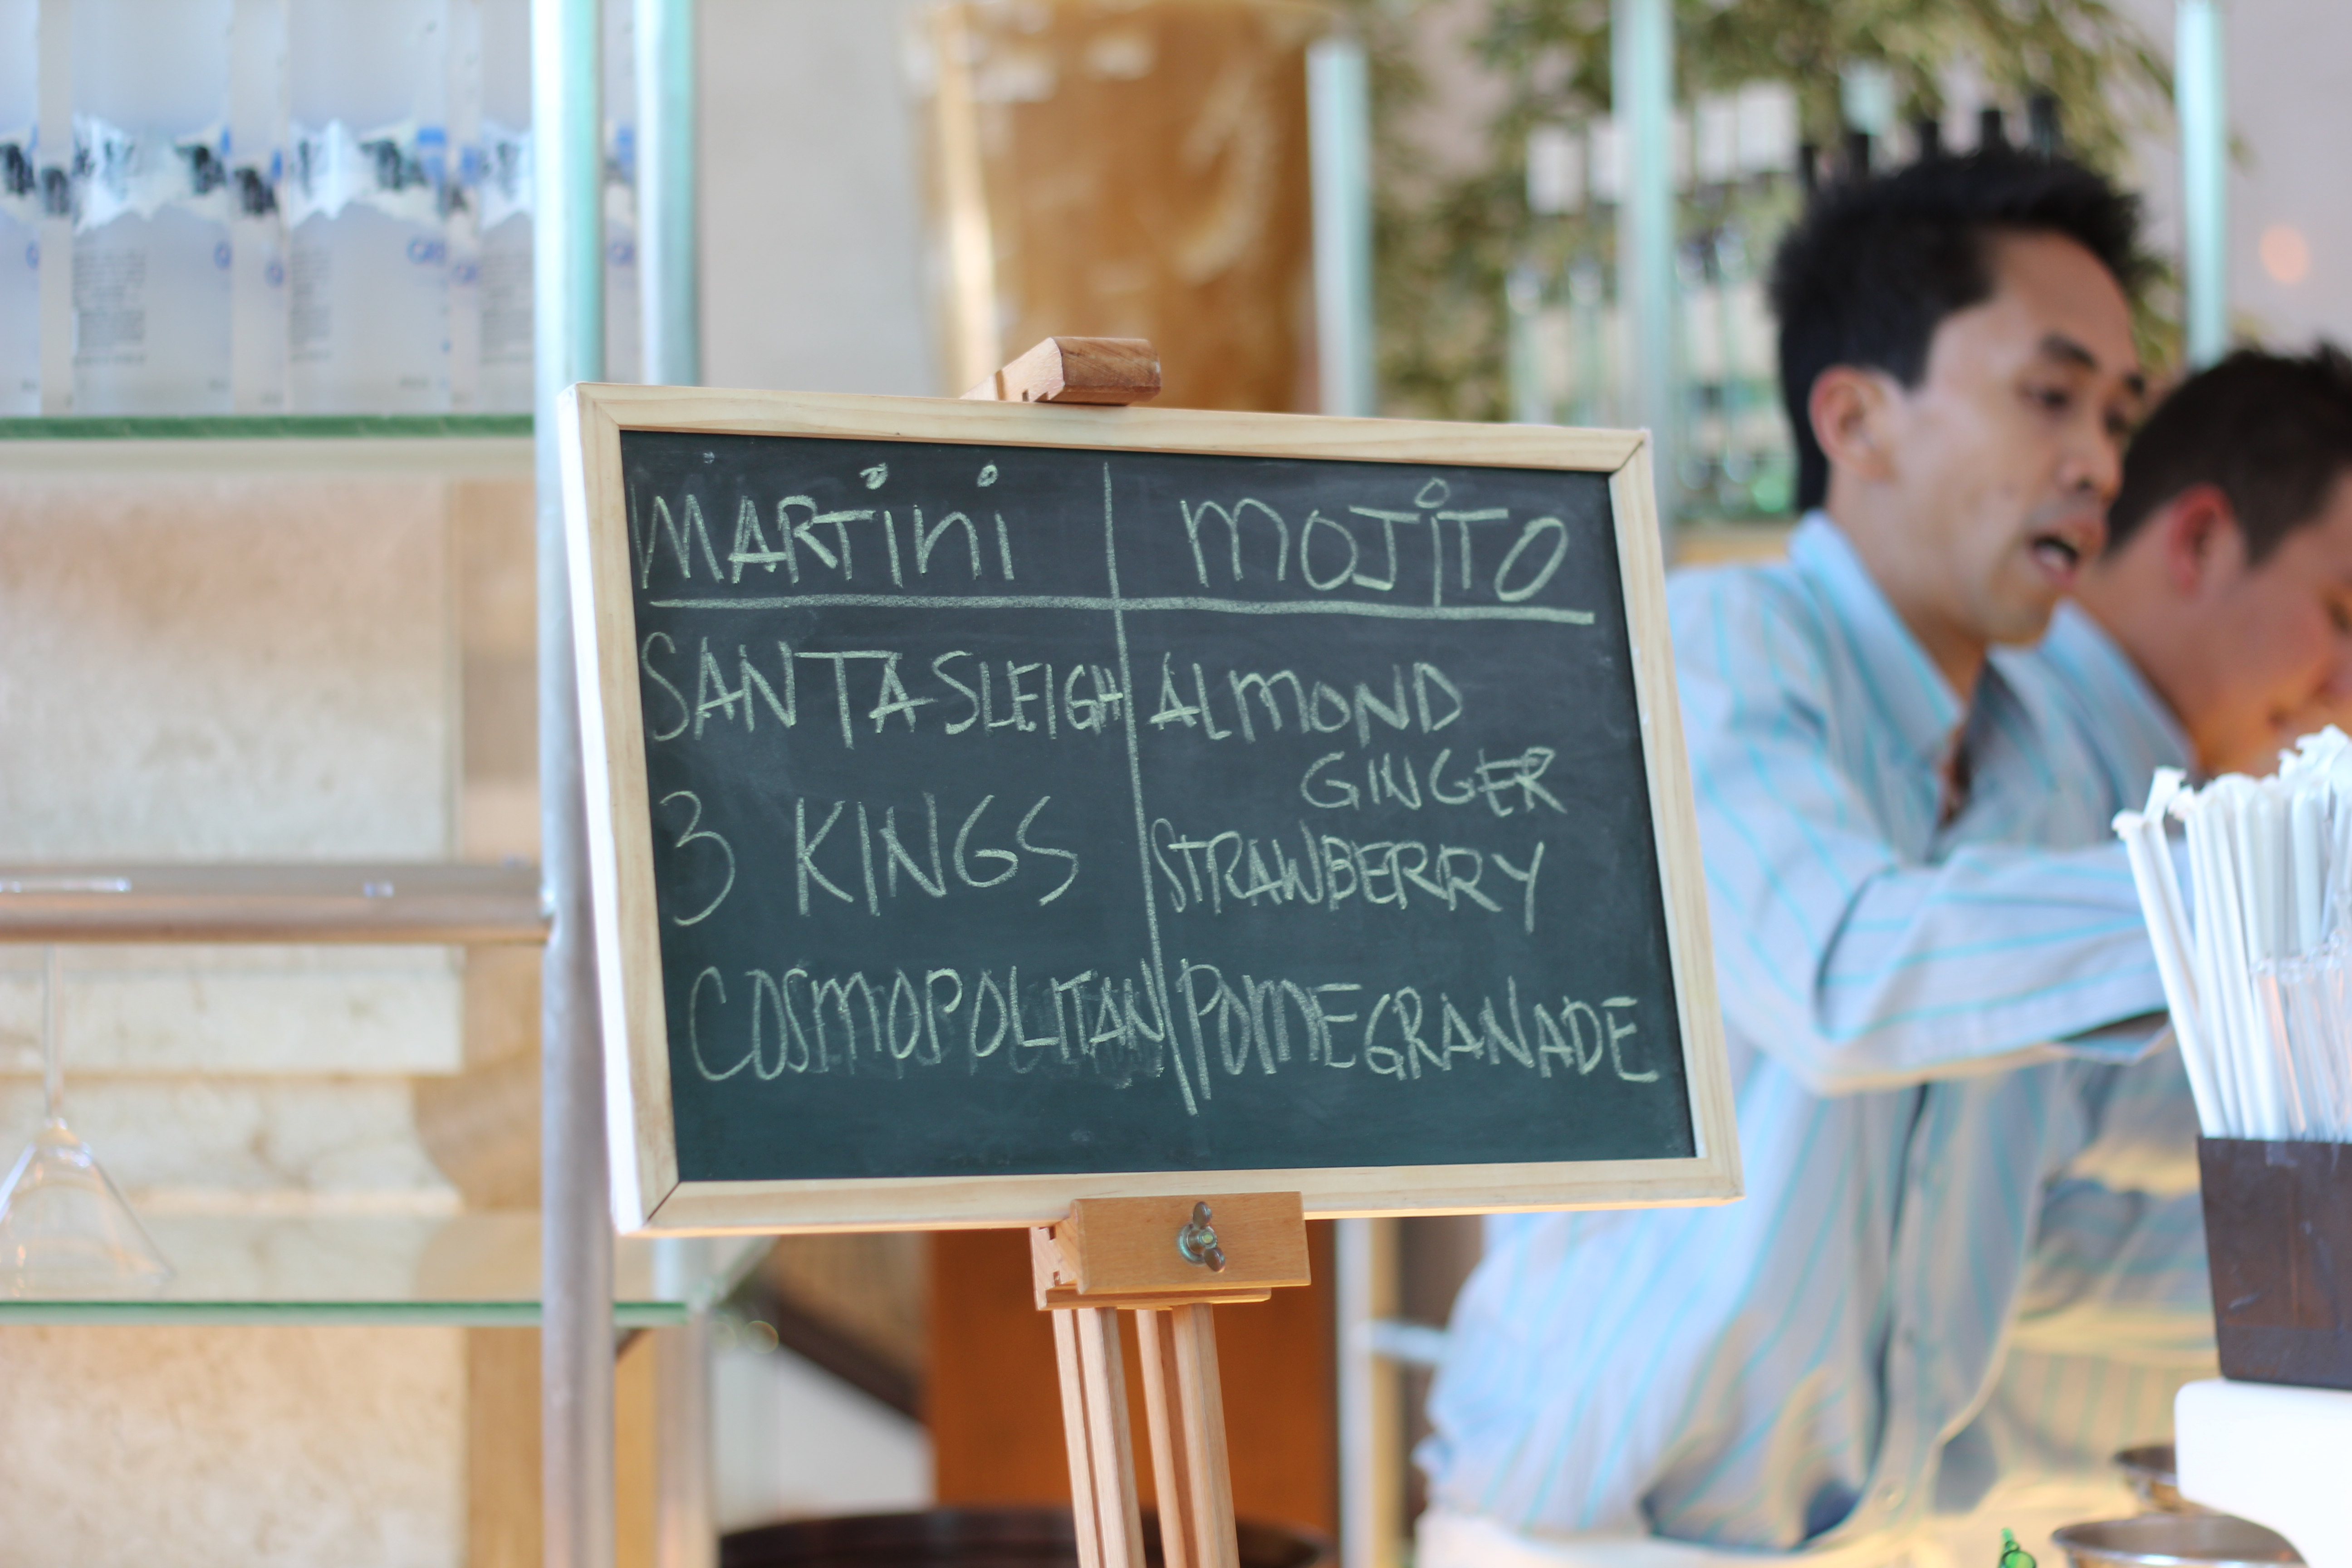 MARTini
SANTA SLEIGH
3 KINGS
COSMOPOLITAN
MOJiTO
ALMOND
GINGER
STRAWBERRY
POMEGRANADE